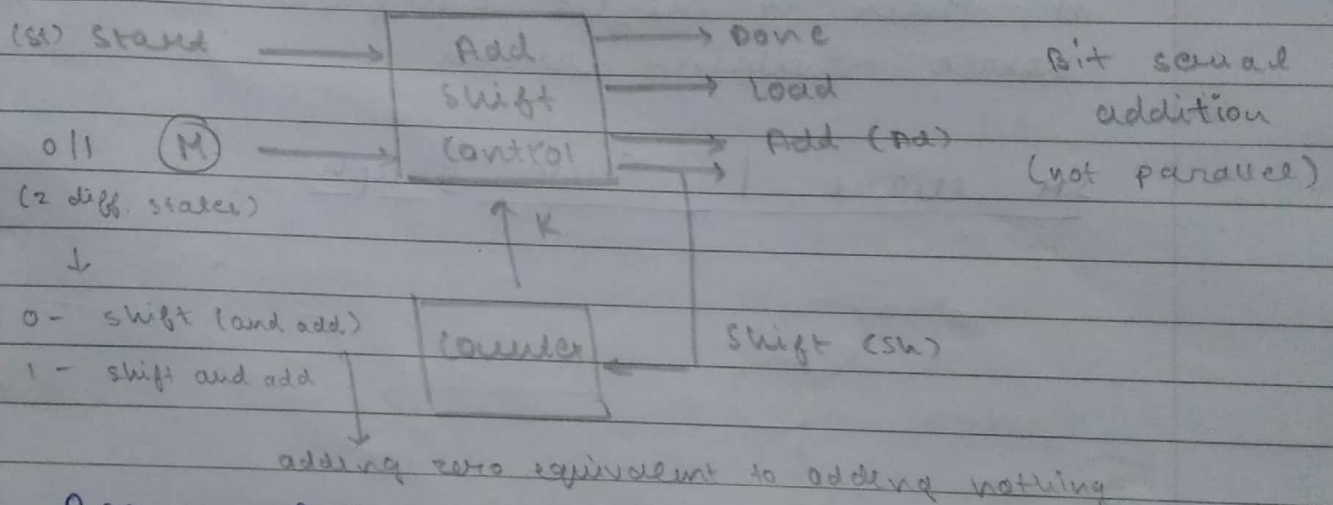 (St) Start
Add
Shift
Control
Done
Load
Add (Ad)
Bit serial
addition
(not parallel)
0/1 M
(2 diff. states)
K
0 - shift (and add)
1 - shift and add
Counter
Shift (Sh)
adding zero equivalent to adding nothing